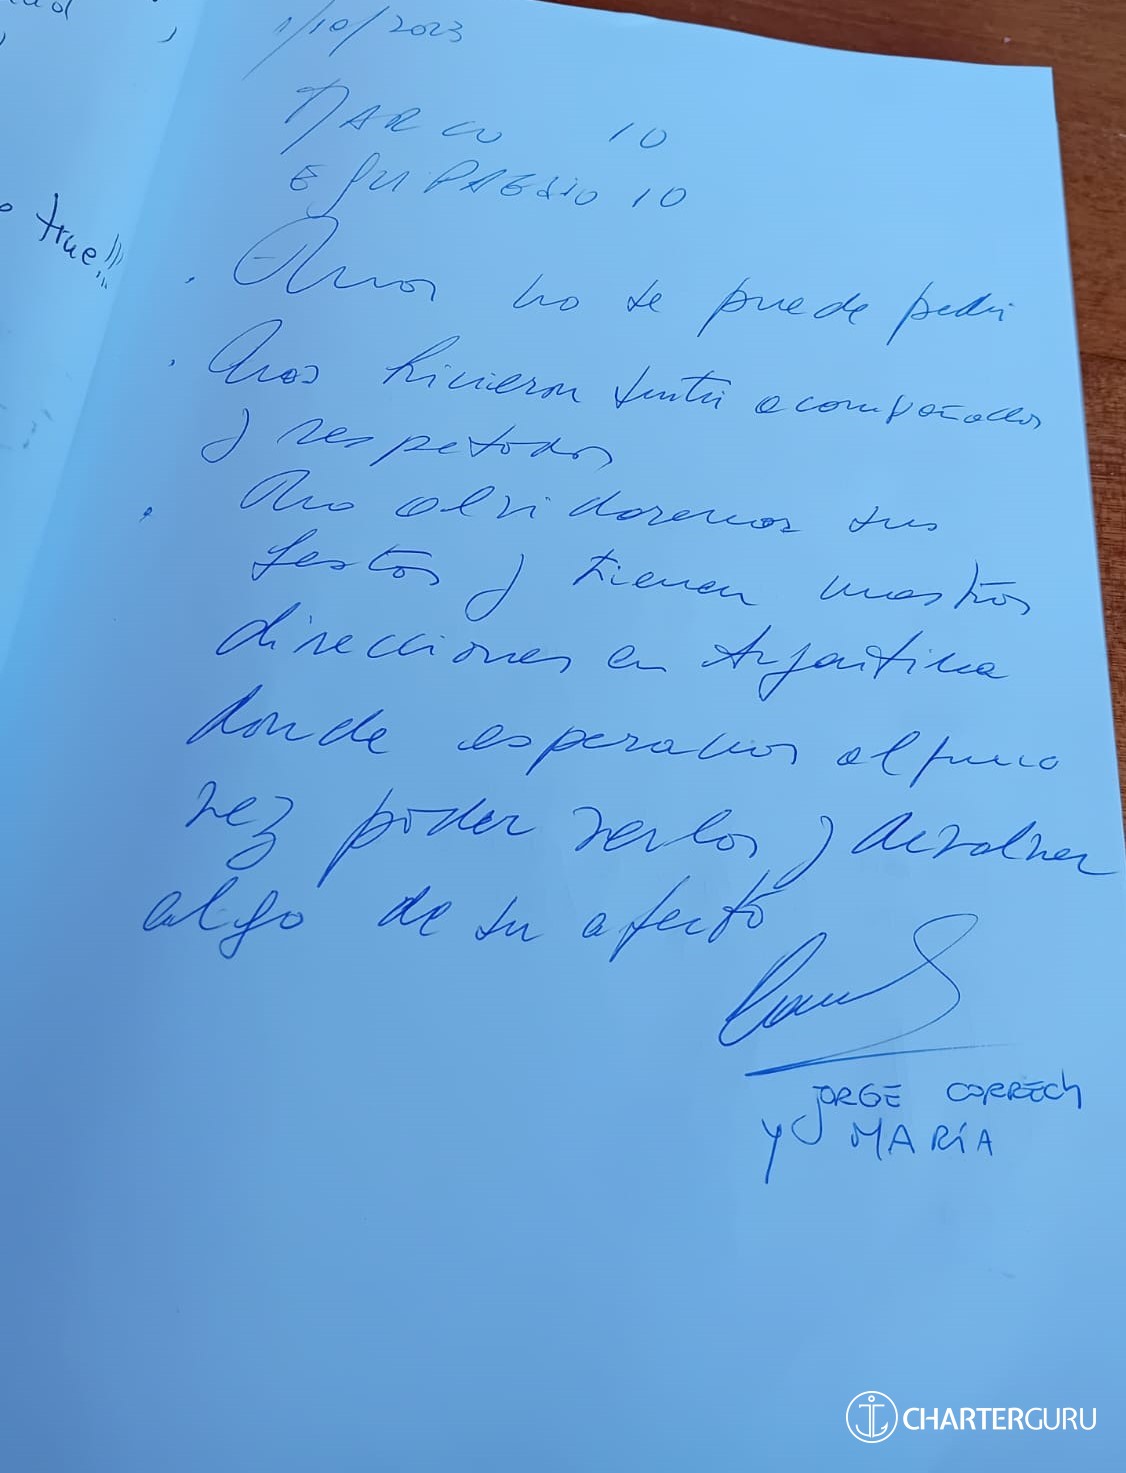 1/10/2023
MARCO 10
EQUIPAESIO 10
true!!!
. Mas no se puede pedir
. Nos hicieron sentir acompañados
y respetados
. No olvidaremos sus
gestos y tienen nuestras
direcciones en Argentina
donde esperamos alguna
vez poder verlos y devolver
algo de su afecto
JORGE CORRECH
Y MARÍA
CHARTERGURU